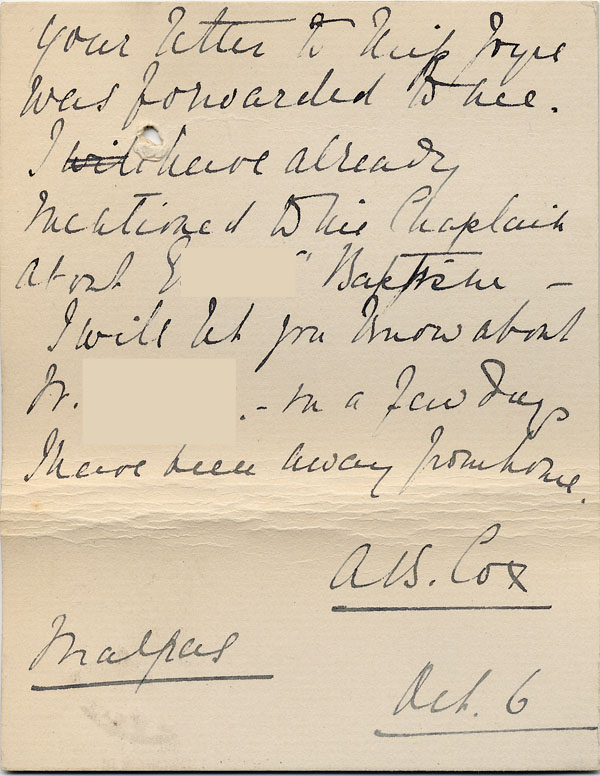 Your letter to Miss Joyce
was forwarded to me.
I will have already
mentioned to the Chaplain
about E " Baptism -
I will let you know about
W. . - in a few days
I have been away from home.
A B. Cox
Malpas
Oct. 6